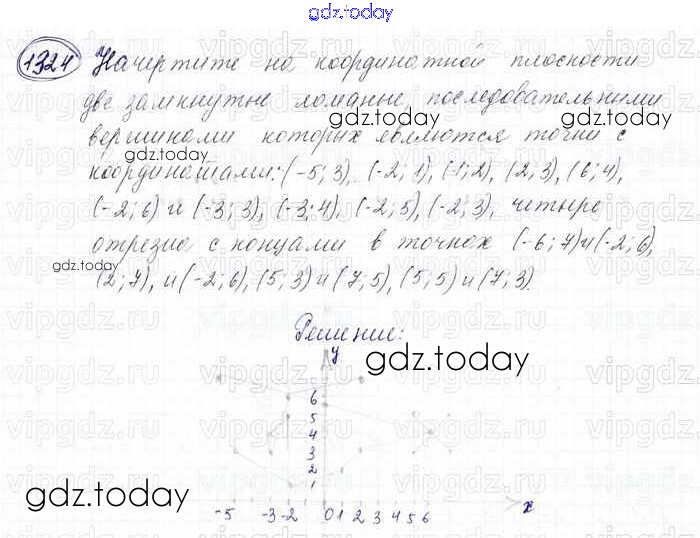 gdz.today
1324 Начертите на координатной плоскости
две замкнутые ломаные, последовательными
вершинами которых являются точки с
координатами: (-5; 3), (-2; 1), (1; 2), (2, 3), (6; 4),
(-2; 6) и (-3; 3), (-3; 4), (-2; 5), (-2; 3), четыре
отрезка с концами в точках (-6; 7) и (-2; 6),
(2; 7), и (-2; 6), (5; 3) и (7; 5), (5; 5) и (7; 3).
Решение:
y
6
5
4
3
2
1
-5 -3 -2 0 1 2 3 4 5 6 x
gdz.today
gdz.today
gdz.today
gdz.today
gdz.today
vipgdz.ru